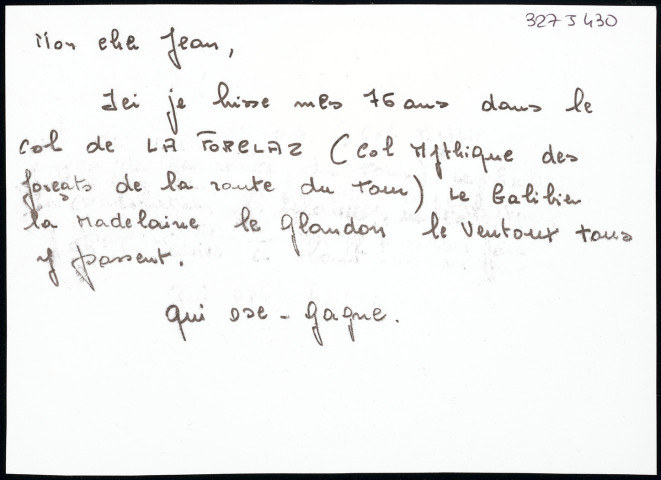 327 J 430
Mon cher Jean,
Ici je hisse mes 76 ans dans le
col de LA FORCLAZ (col Mythique des
forçats de la route du tour) Le Galibier
la Madelaine le Glandon le Ventoux tous
y passent.
Qui ose - gagne.